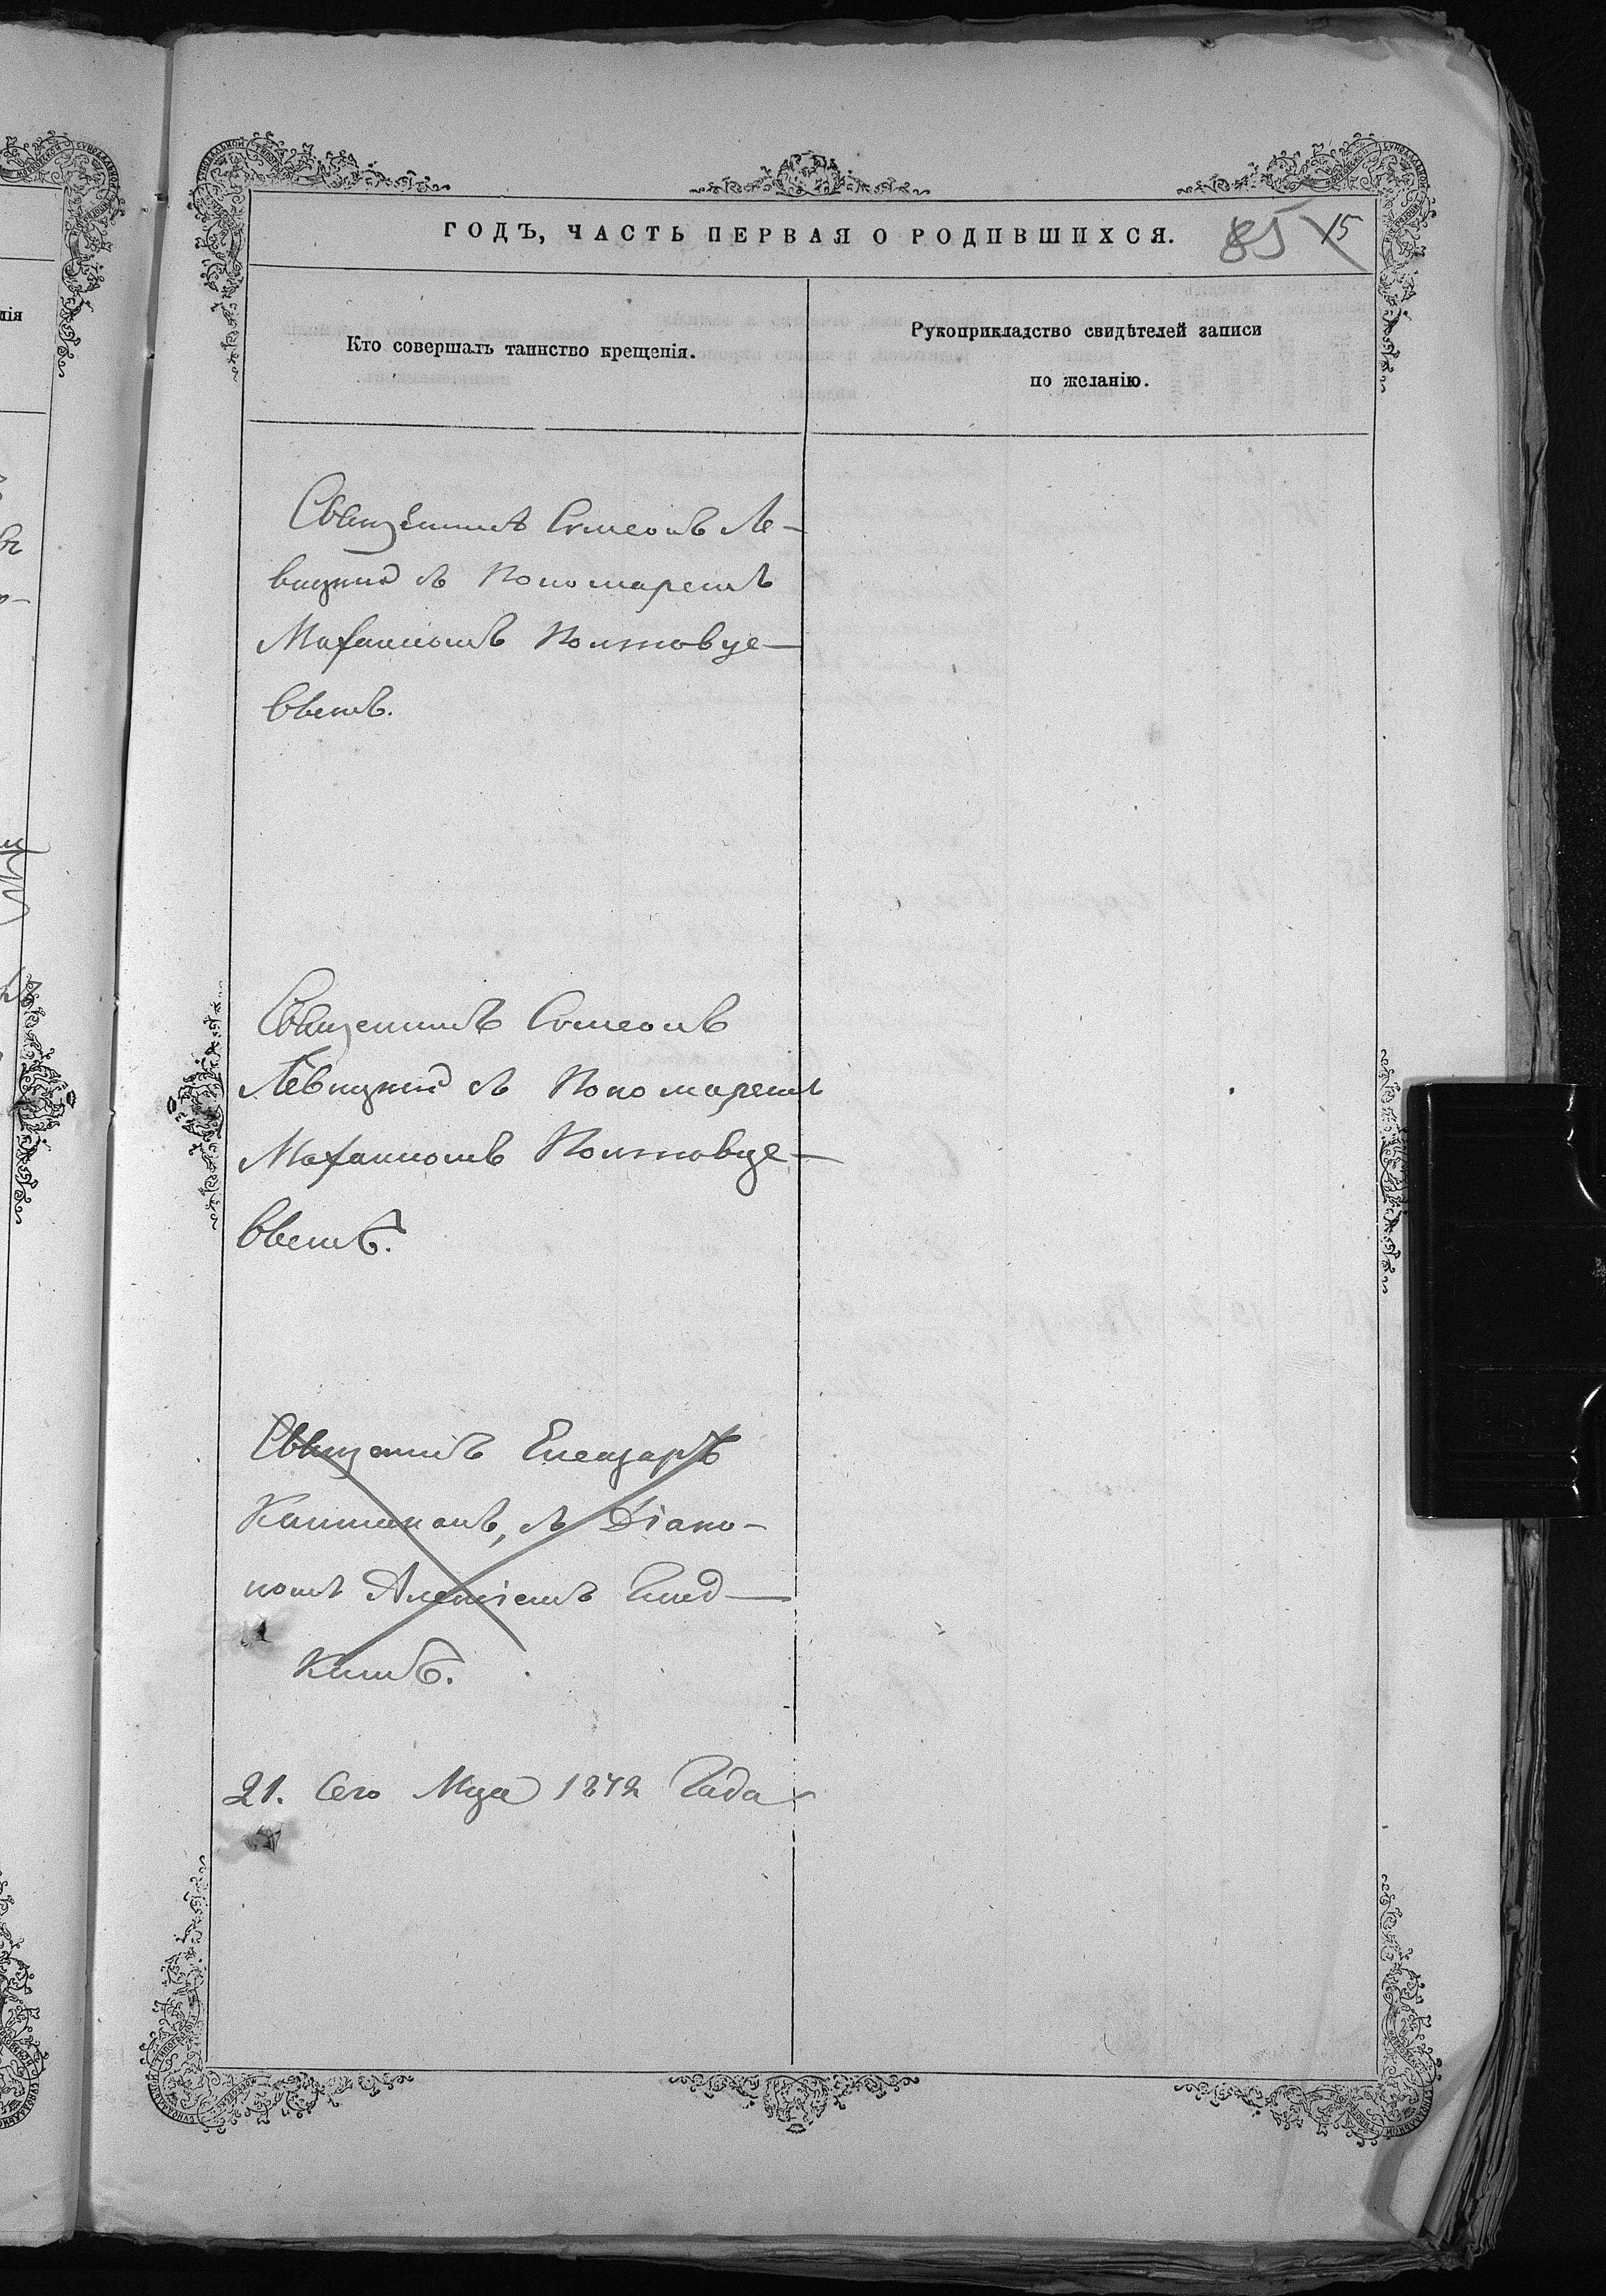 ГОДЪ, ЧАСТЬ ПЕРВАЯ О РОДИВШИХСЯ. 85 15
Кто совершалъ таинство крещенія.
Рукоприкладство свидѣтелей записи
по желанію.
Священникъ Симеонъ Ле-
вицкій съ Пономаремъ
Полтовце-
вымъ.
Священникъ Симеонъ
Левицкій съ Пономаремъ
Полтовце-
вымъ.
Священникъ Елеазаръ
съ Діако-
номъ Алексіемъ
21. Сего Мца 1872 Года